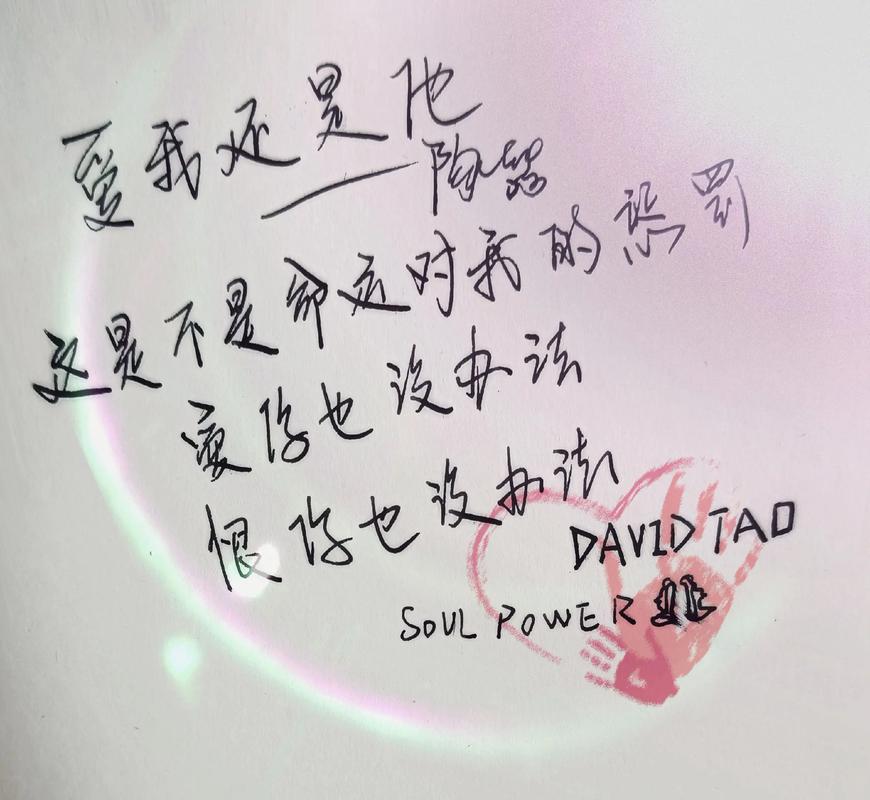 爱我还是他
——陶喆
这是不是命运对我的惩罚
爱你也没办法
恨你也没办法
DAVID TAO
SOUL POWER